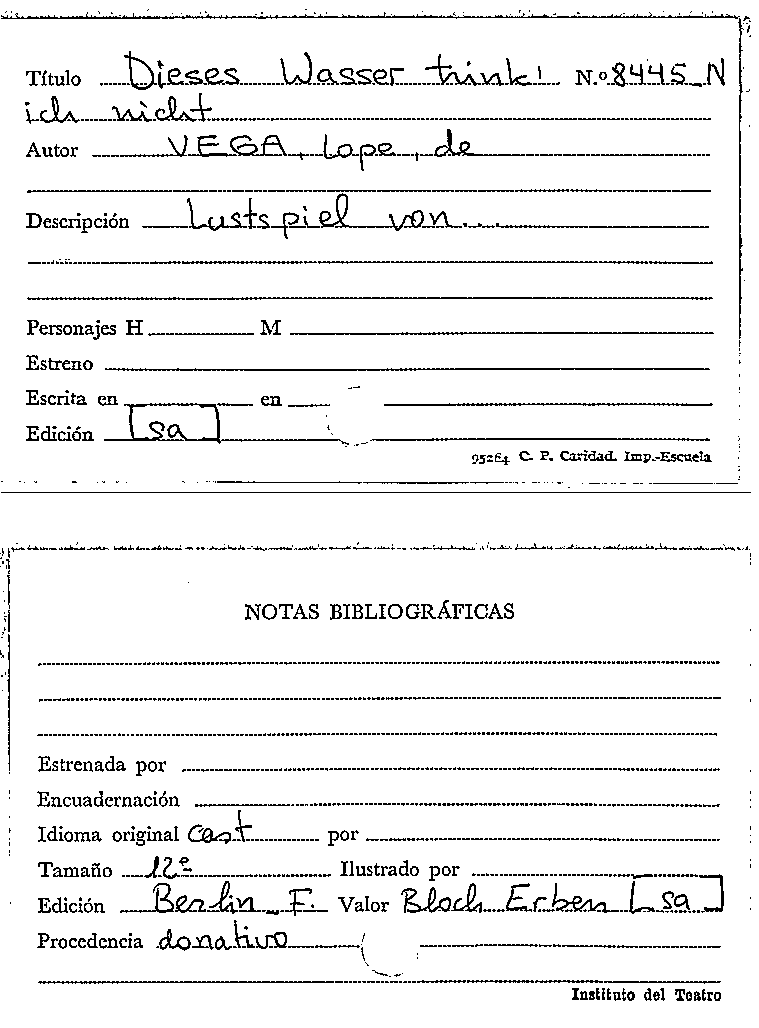 Título Dieses Wasser trink' N.º 8445-N
ich nicht
Autor VEGA, Lope, de
Descripción Lustspiel von...
Personajes H M
Estreno
Escrita en en
Edición [sa]
95264 C. P. Caridad. Imp.-Escuela
NOTAS BIBLIOGRÁFICAS
Estrenada por
Encuadernación
Idioma original Cast por
Tamaño 12º Ilustrado por
Edición Berlin F. Valor Bloch Erben [sa]
Procedencia donativo
Instituto del Teatro